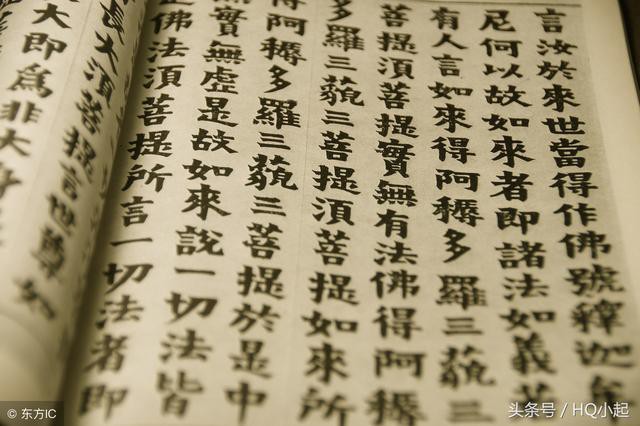 言汝於來世當得作佛號釋迦
尼何以故如來者即諸法如義若
有人言如來得阿耨多羅三藐三
菩提須菩提實無有法佛得阿耨
多羅三藐三菩提須菩提如來所
得阿耨多羅三藐三菩提於是中
實無虛是故如來說一切法皆
佛法須菩提所言一切法者即
長大須菩提言世尊如
大即為非大身
© 东方IC
头条号 / HQ小起